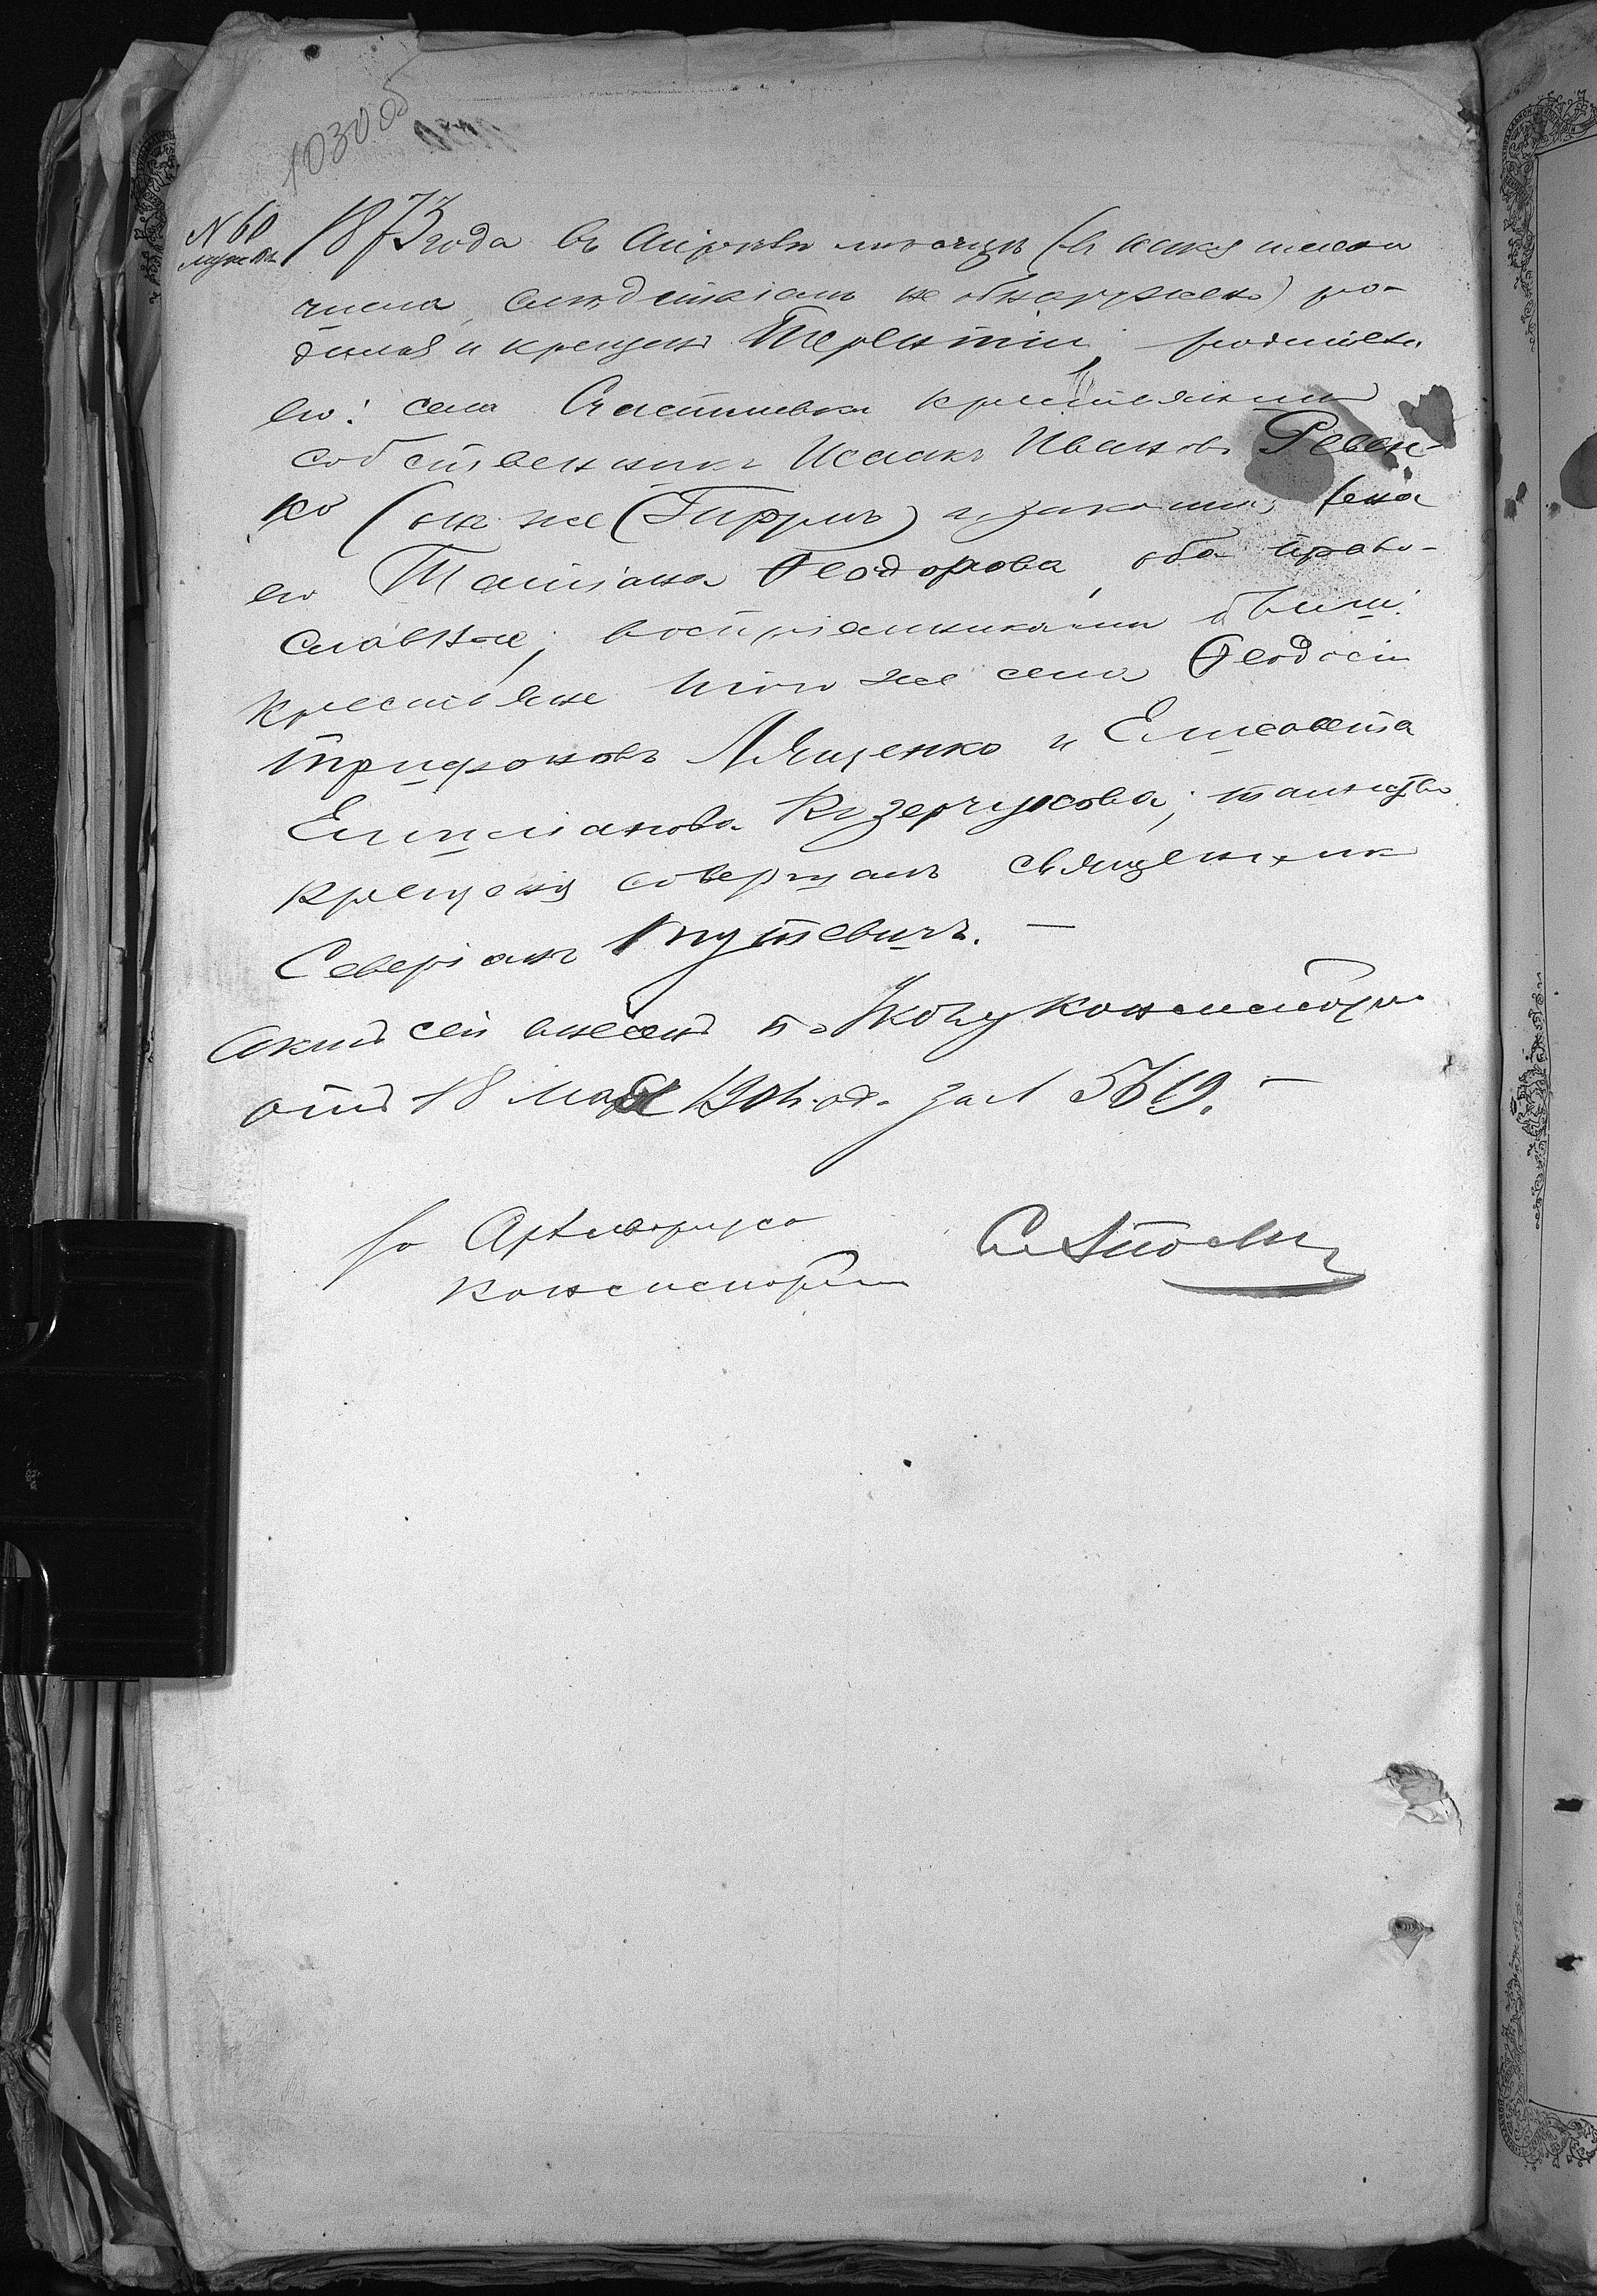 1030 об
№ 60 1873 года въ Апрѣлѣ мѣсяцѣ (въ какія именно
мужск.
числа, слѣдствіемъ не обнаружено) ро-
дился и крещенъ Терентій, родители
его: села Счастливки крестьянинъ
собственникъ Исаакъ Ивановъ Ревен-
ко (онъ же (Гирринъ) и законная жена
его Татіана Ѳеодорова, оба право-
славные; воспріемниками были:
крестьяне того же села Ѳеодосій
Трифоновъ Лященко и Елисавета
Емиліанова Козерчукова; таинство
крещенія совершалъ священникъ
Северіанъ Тутевичъ. —
Актъ сей внесенъ по Указу Консисторіи
отъ 18 мая 1901 год. за № 5619. —
Архиваріуса
Консисторіи